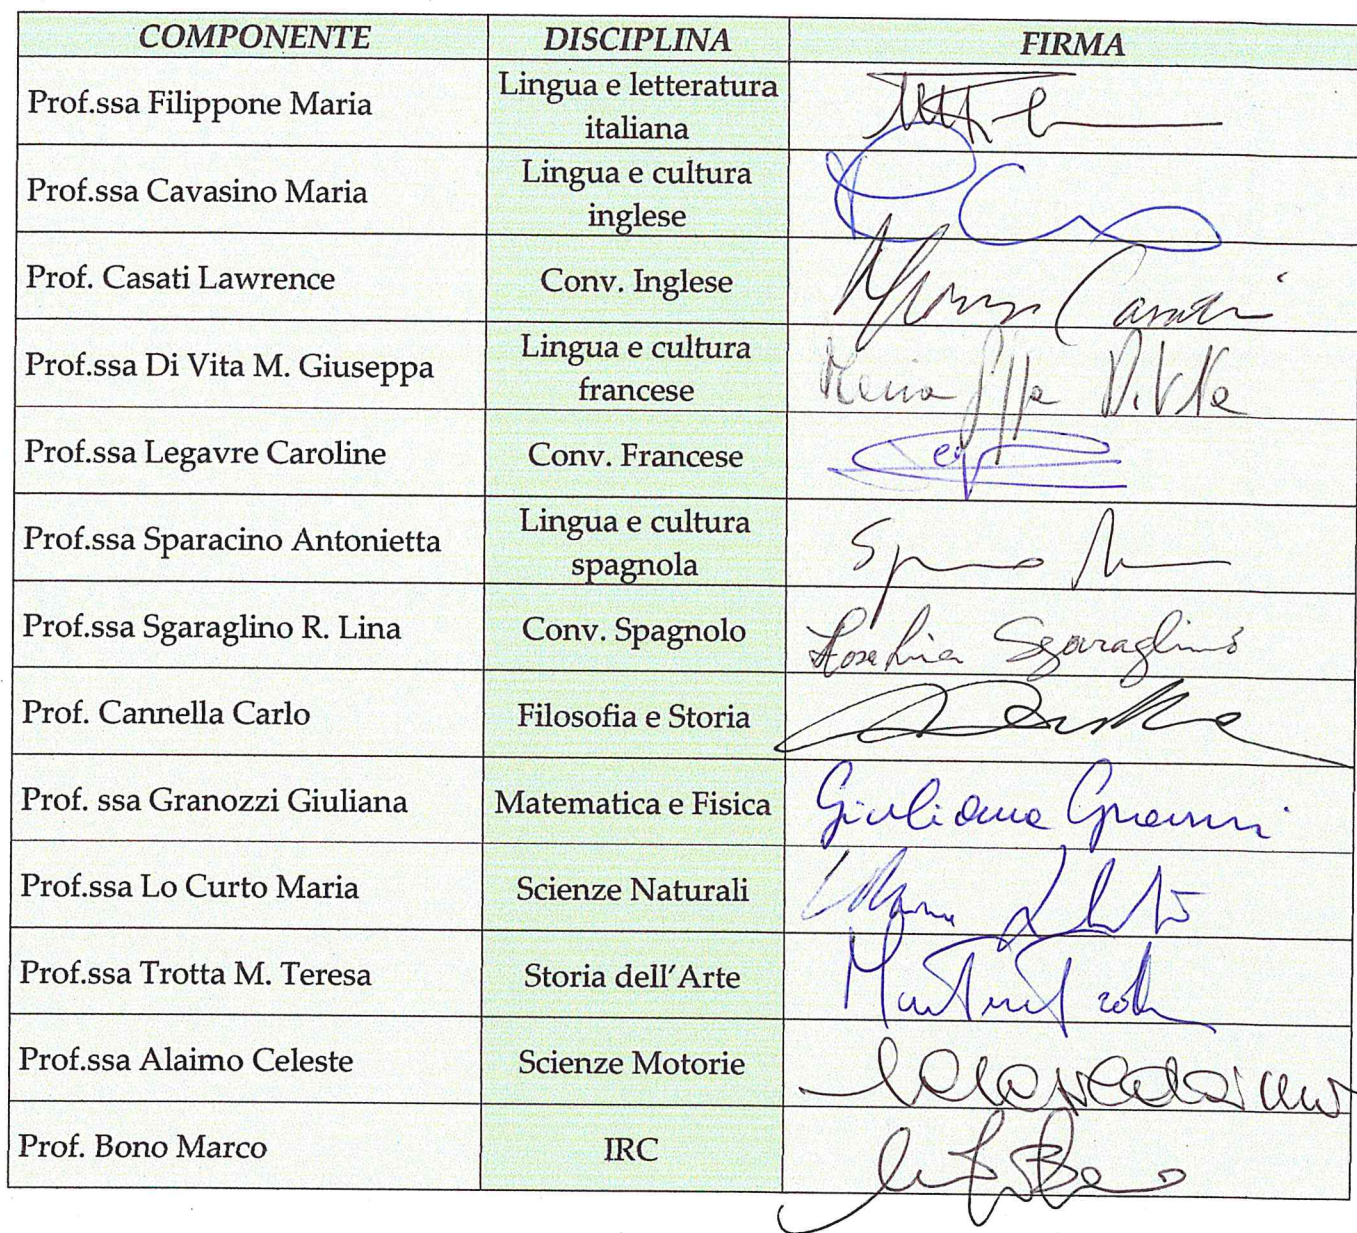 COMPONENTE DISCIPLINA FIRMA
Prof.ssa Filippone Maria
Lingua e letteratura
italiana
Prof.ssa Cavasino Maria
Lingua e cultura
inglese
Prof. Casati Lawrence
Conv. Inglese
Prof.ssa Di Vita M. Giuseppa
Lingua e cultura
francese
Maria G.ppa Di Vita
Prof.ssa Legavre Caroline
Conv. Francese
Prof.ssa Sparacino Antonietta
Lingua e cultura
spagnola
Prof.ssa Sgaraglino R. Lina
Conv. Spagnolo
Rosa Lina Sgaraglino
Prof. Cannella Carlo
Filosofia e Storia
Prof. ssa Granozzi Giuliana
Matematica e Fisica
Giuliana
Prof.ssa Lo Curto Maria
Scienze Naturali
Prof.ssa Trotta M. Teresa
Storia dell'Arte
Prof.ssa Alaimo Celeste
Scienze Motorie
Prof. Bono Marco
IRC